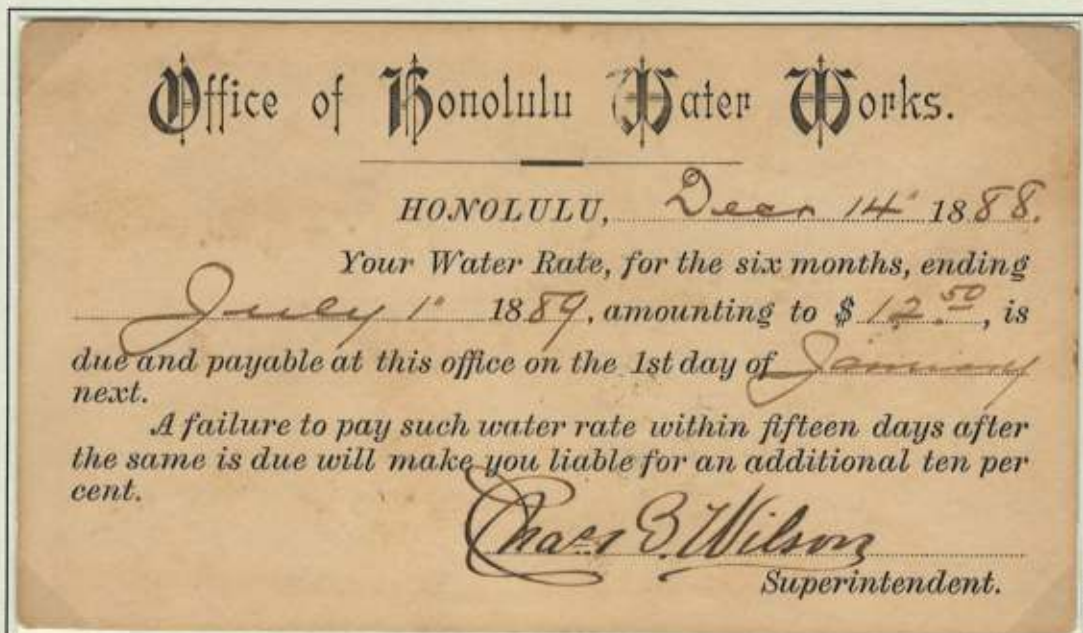 Office of Honolulu Water Works.
HONOLULU, Decr 14" 1888.
Your Water Rate, for the six months, ending
July 1" 1889, amounting to $ 12.50, is
due and payable at this office on the 1st day of January
next.
A failure to pay such water rate within fifteen days after
the same is due will make you liable for an additional ten per
cent.
Chas B. Wilson
Superintendent.